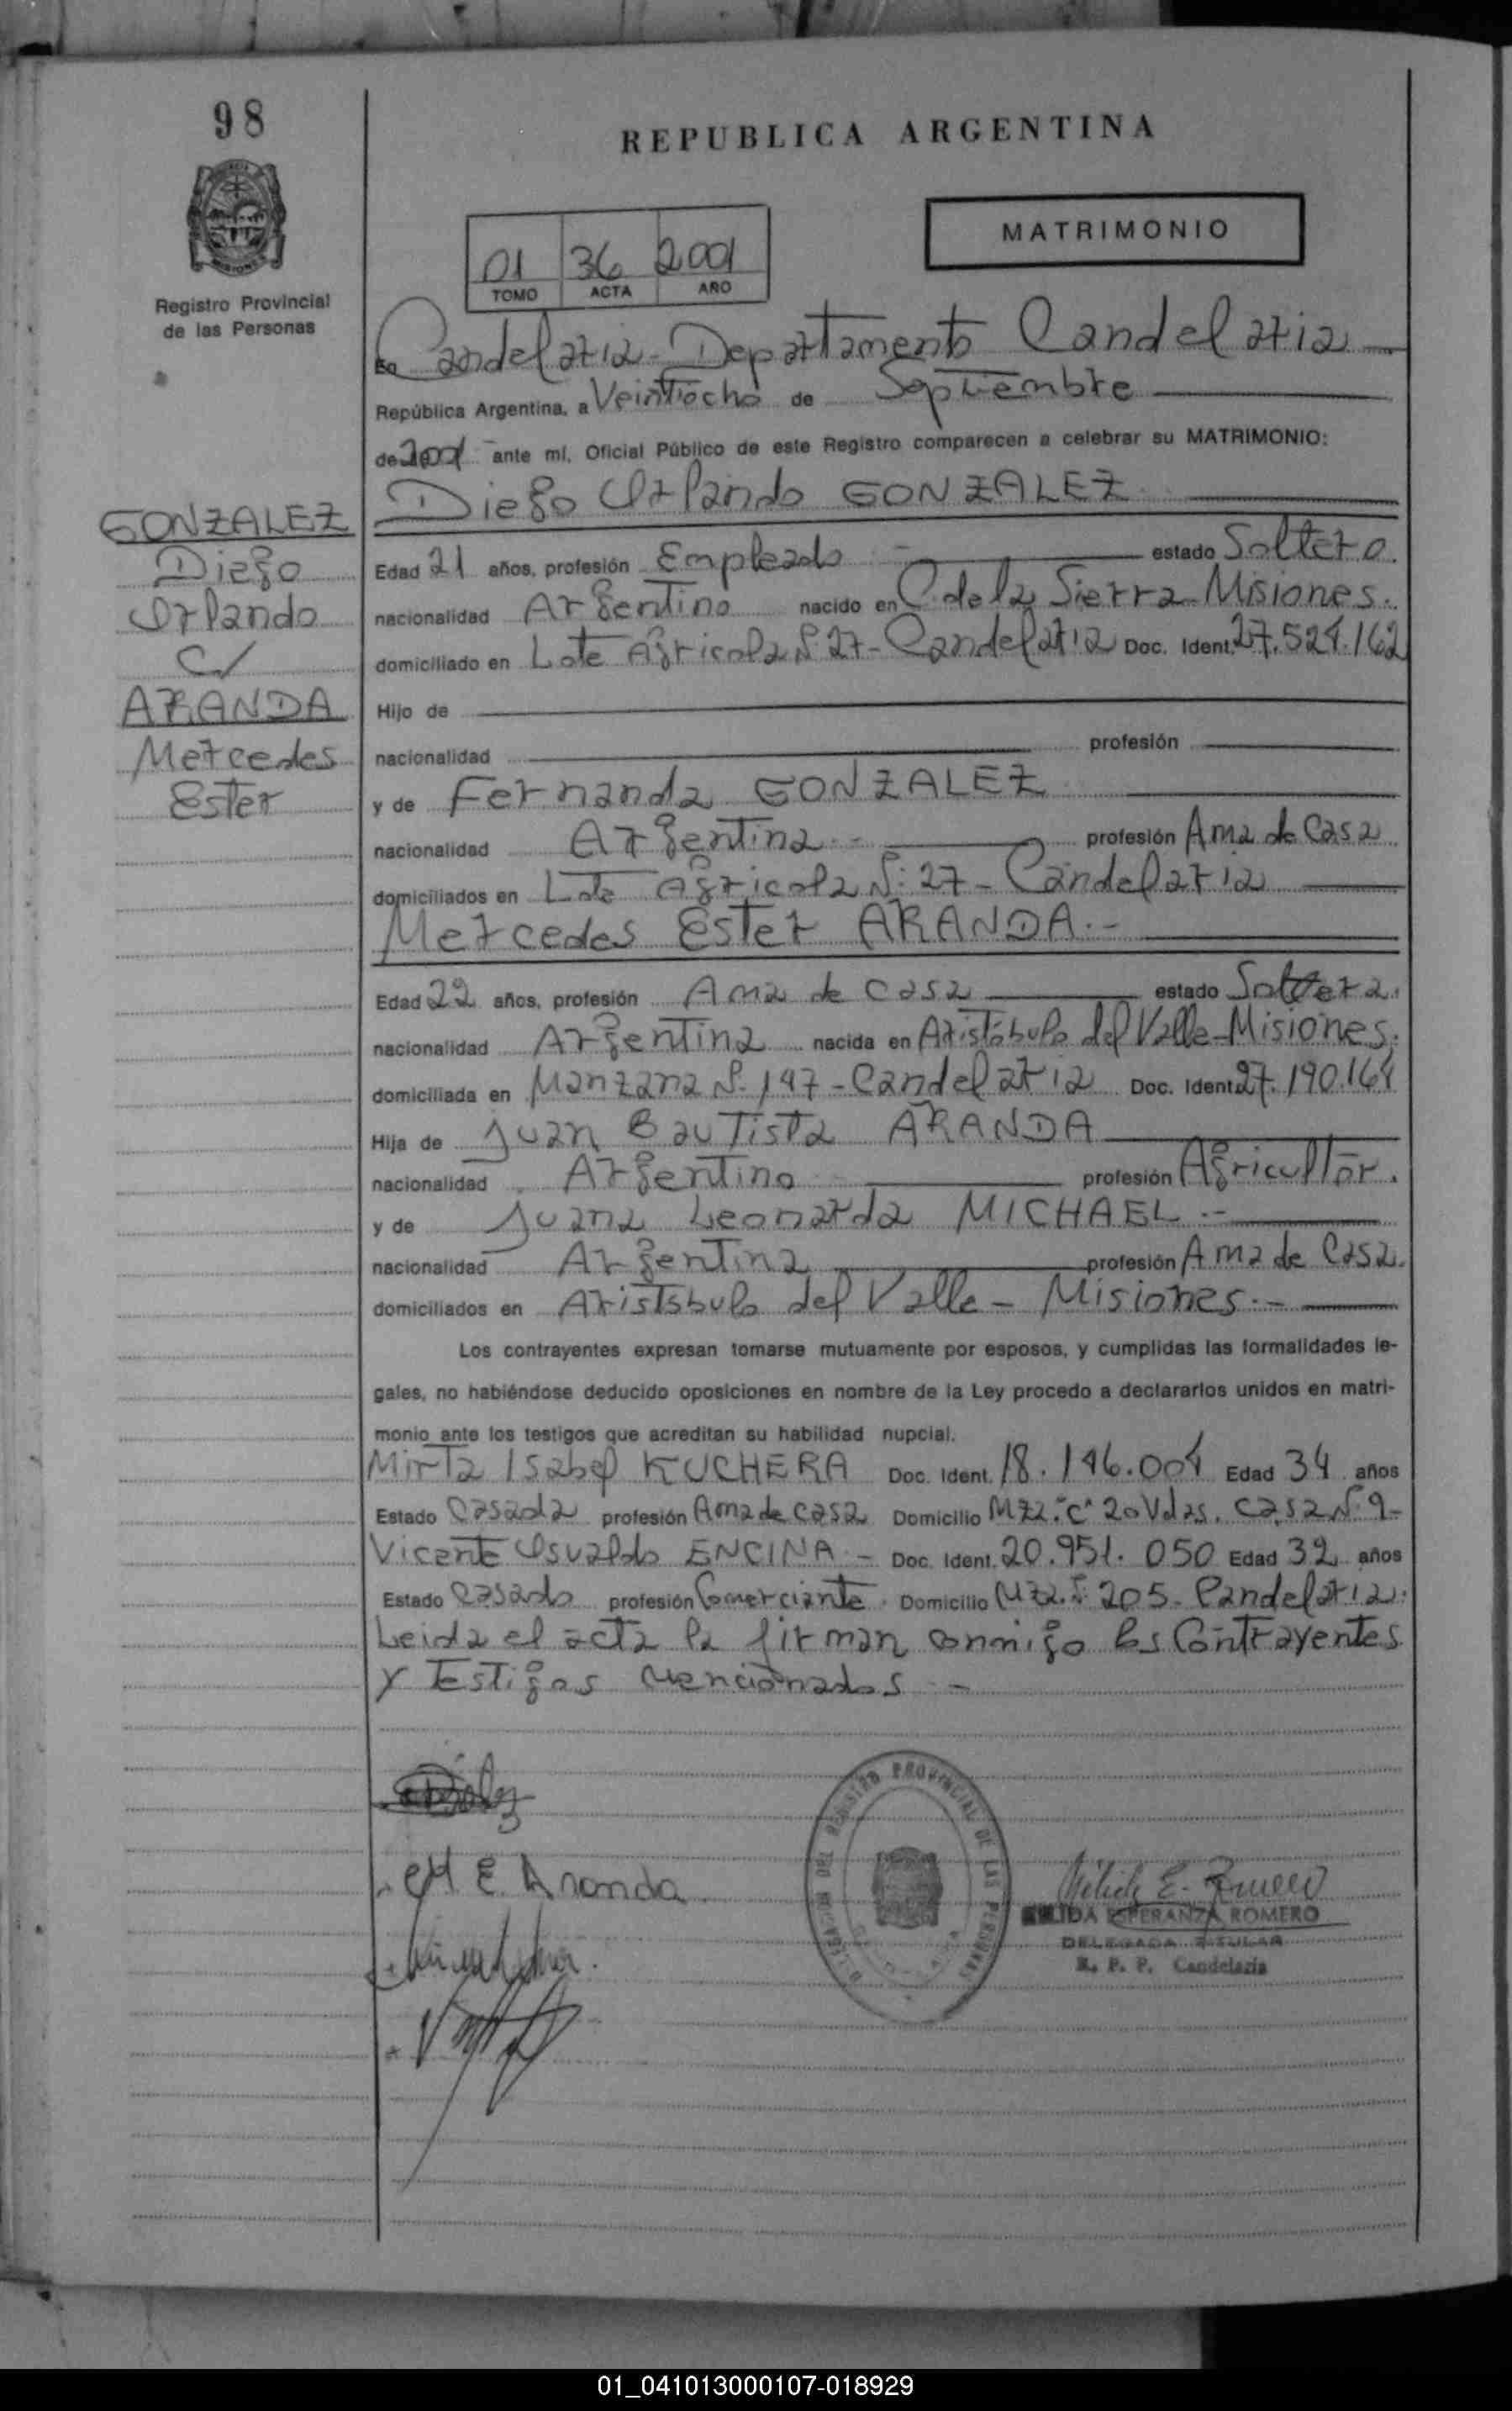 98
REPUBLICA ARGENTINA
MATRIMONIO
01 36 2001
TOMO ACTA AÑO
MISIONES
Registro Provincial
de las Personas
En Candelaria - Departamento Candelaria
República Argentina, a Veintiocho de Septiembre
de 2001 ante mí, Oficial Público de este Registro comparecen a celebrar su MATRIMONIO:
Diego Orlando GONZALEZ
GONZALEZ
Diego
Orlando
C/
ARANDA
Mercedes
Ester
Edad 21 años, profesión Empleado estado Soltero.
nacionalidad Argentino nacido en C. de la Sierra - Misiones.
domiciliado en Lote Agricola Nº 27 - Candelaria Doc. Ident. 27.524.162
Hijo de
nacionalidad profesión
y de Fernanda GONZALEZ
nacionalidad Argentina.- profesión Ama de Casa
domiciliados en Lote Agricola Nº 27 - Candelaria
Mercedes Ester ARANDA.-
Edad 22 años, profesión Ama de Casa estado Soltera.
nacionalidad Argentina nacida en Aristóbulo del Valle - Misiones.
domiciliada en Manzana Nº 147 - Candelaria Doc. Ident. 27.190.164
Hija de Juan Bautista ARANDA
nacionalidad Argentino profesión Agricultor.
y de Juana Leonarda MICHAEL.-
nacionalidad Argentina profesión Ama de Casa.
domiciliados en Aristóbulo del Valle - Misiones.-
Los contrayentes expresan tomarse mutuamente por esposos, y cumplidas las formalidades le-
gales, no habiéndose deducido oposiciones en nombre de la Ley procedo a declararlos unidos en matri-
monio ante los testigos que acreditan su habilidad nupcial.
Mirta Isabel KUCHERA Doc. Ident. 18.146.004 Edad 34 años
Estado Casada profesión Ama de casa Domicilio Mza. "C" 20 Vdas. Casa Nº 9-
Vicente Osvaldo ENCINA - Doc. Ident. 20.951.050 Edad 32 años
Estado Casado profesión Comerciante. Domicilio Mza. Nº 205 - Candelaria.
Leida el acta la firman conmigo los Contrayentes
y Testigos mencionados -
M E Aranda
REGISTRO PROVINCIAL DE LAS PERSONAS
ESPERANZA ROMERO
DELEGADA TITULAR
R. P. P. Candelaria
01_041013000107-018929